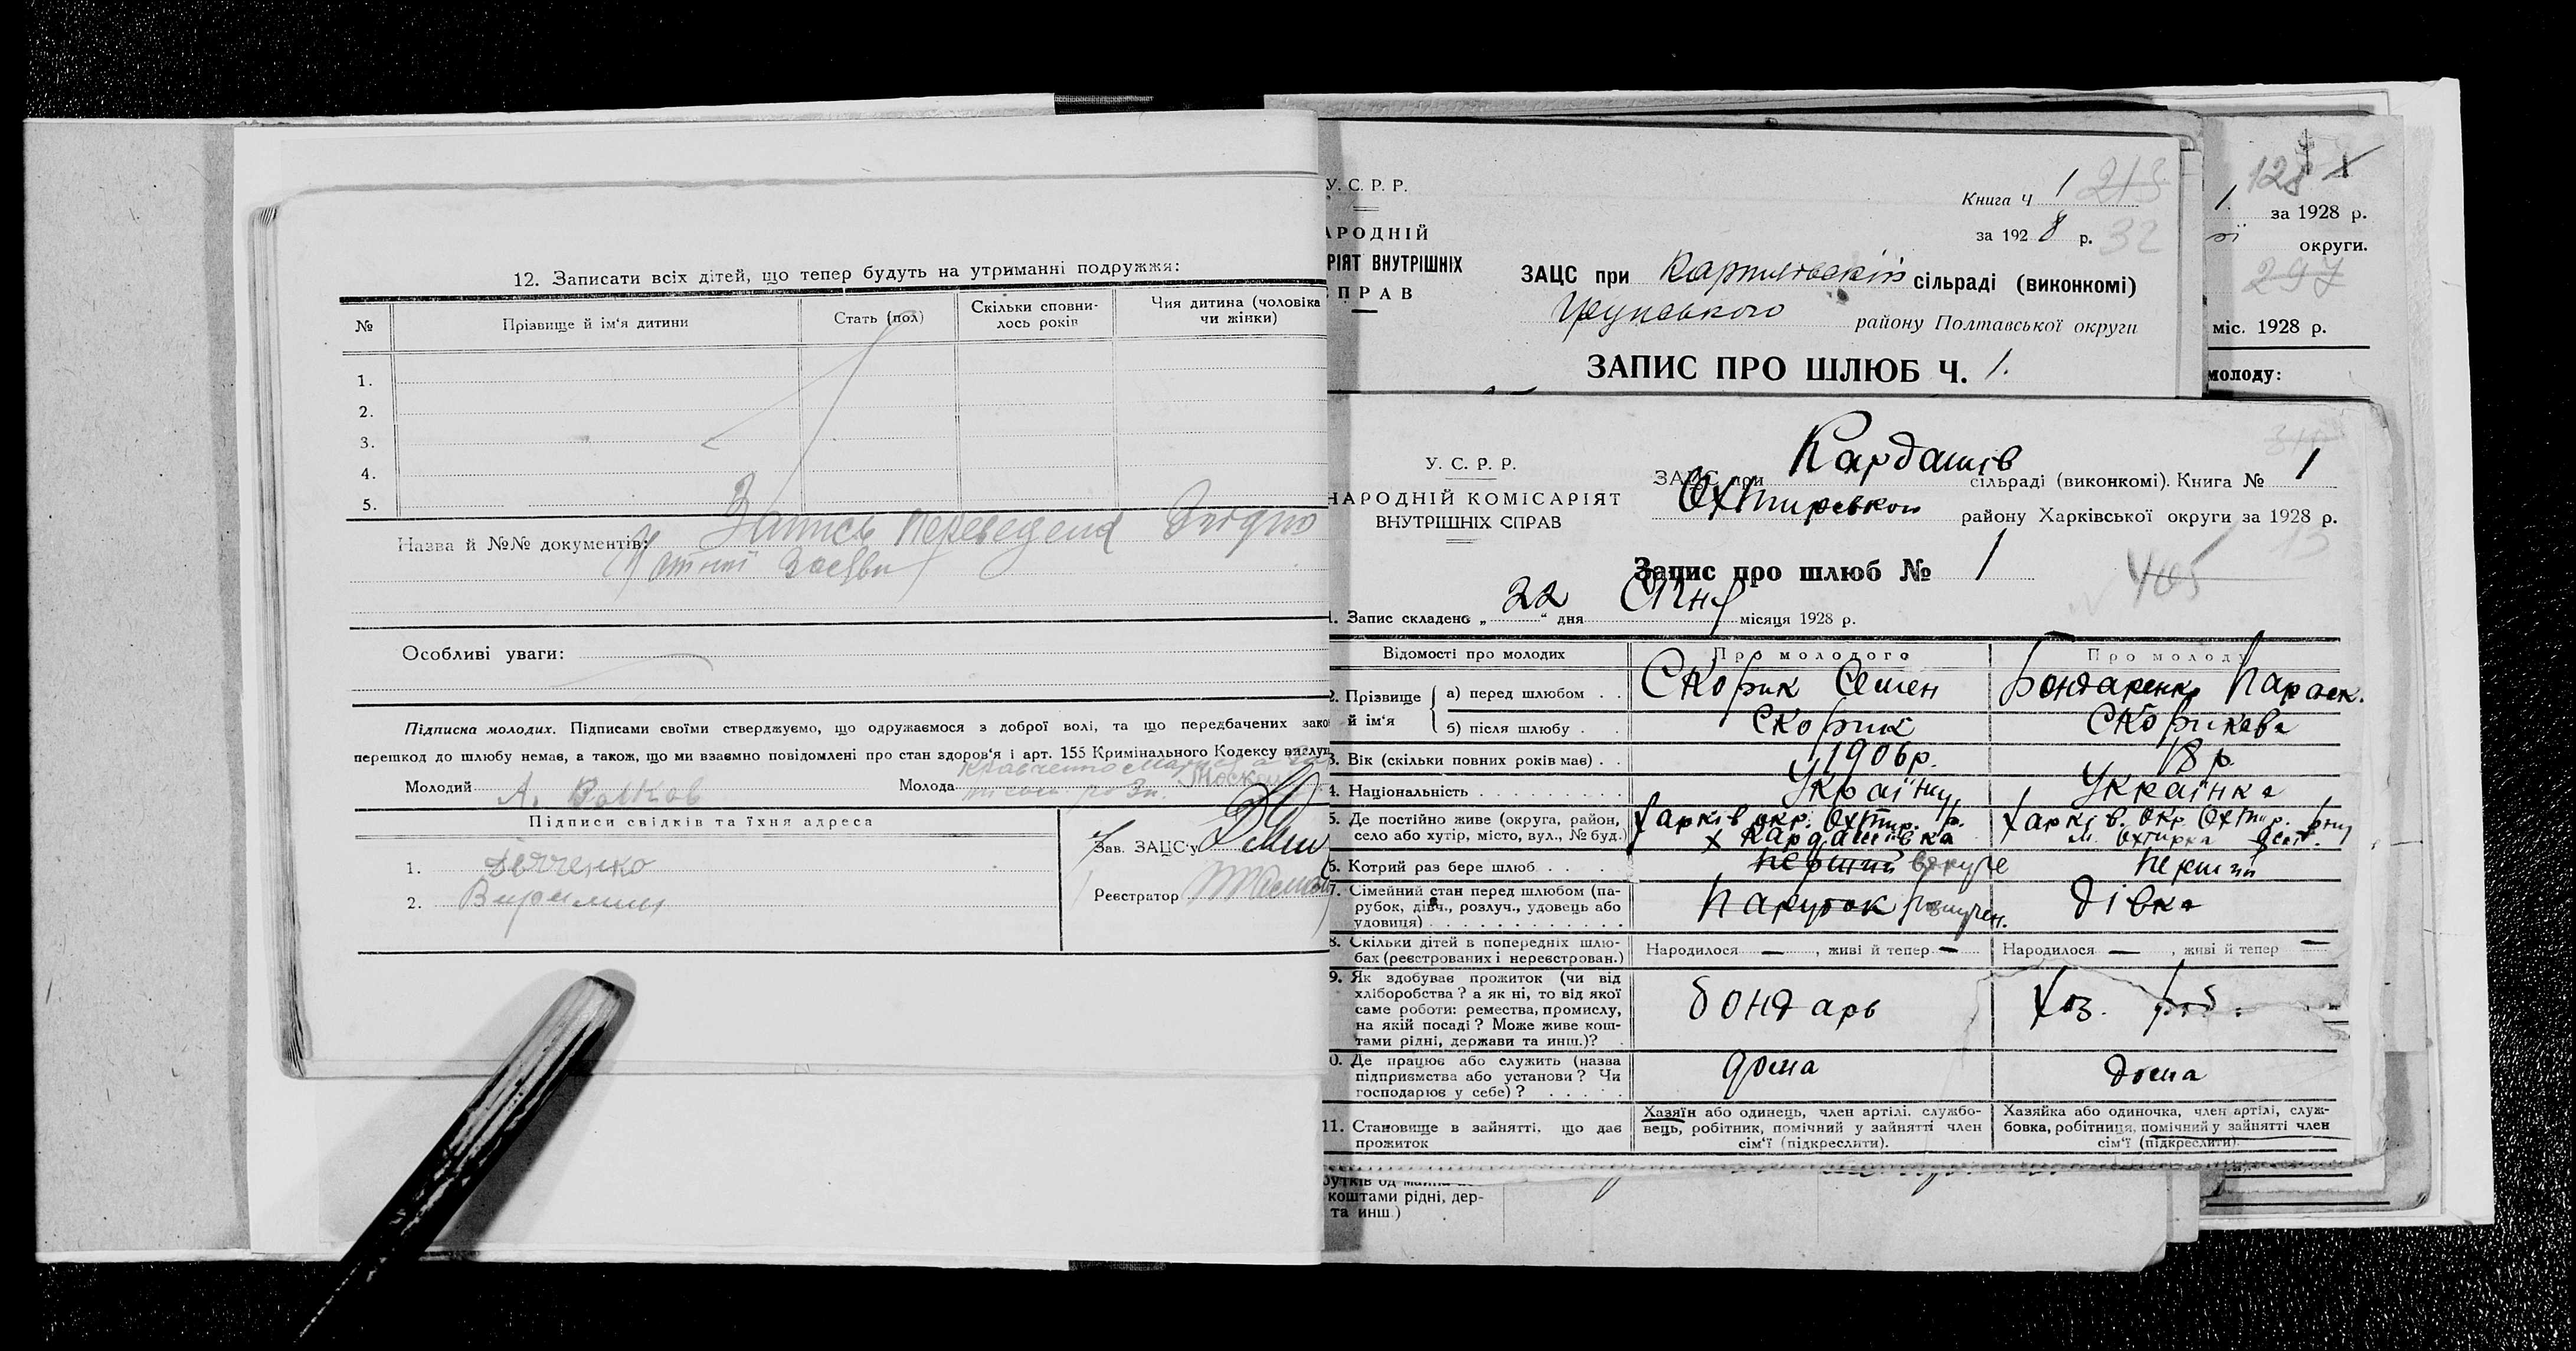 12. Записати всіх дітей, що тепер будуть на утриманні подружжя:
№
Прізвище й ім'я дитини
Стать (пол)
Скільки сповни-
лось років
Чия дитина (чоловіка
чи жінки)
1.
2.
3.
4.
5.
Назва й №№ документів: Запись переведена Згідно
заєви
Особливі уваги:
Підписка молодих. Підписами своїми стверджуємо, що одружаємося з доброї волі, та що передбачених зако
перешкод до шлюбу немає, а також, що ми взаємно повідомлені про стан здоров'я і арт. 155 Кримінального Кодексу вислух
Молодий А. Волков
Молода
Підписи свідків та їхня адреса
1. Дяченко
2.
Зав. ЗАЦС'у
Реєстратор
У. С. Р. Р.
АРОДНІЙ
РІЯТ ВНУТРІШНІХ
ПРАВ
Книга Ч 1 213
за 1928 р. 32
ЗАЦС при сільраді (виконкомі)
району Полтавської округи
ЗАПИС ПРО ШЛЮБ Ч. 1.
128
1. за 1928 р.
округи.
297
міс. 1928 р.
молоду:
У. С. Р. Р.
НАРОДНІЙ КОМІСАРІЯТ
ВНУТРІШНІХ СПРАВ
ЗАЦС при Кардашів сільраді (виконкомі). Книга № 1
Охтирської району Харківської округи за 1928 р.
13
Запис про шлюб № 1
405
1. Запис складено „22" дня Січня місяця 1928 р.
Відомості про молодих
Про молодого
Про молоду
2. Прізвище й ім'я
а) перед шлюбом . .
Скорик Семен
Бондаренко Параск.
б) після шлюбу . .
Скорик
Скорикова
3. Вік (скільки повних років має) . .
1906р.
18 р.
4. Національність
Україну
Українка
5. Де постійно живе (округа, район,
село або хутір, місто, вул., № буд.)
Харків окр. Охтир. р.
х Кардашівка
Харків. окр. Охтир.
м. Охтирка
6. Котрий раз бере шлюб
перший вдруге
перший
7. Сімейний стан перед шлюбом (па-
рубок, дівч., розлуч., удовець або
удовиця)
Парубок розлучен.
дівка
8. Скільки дітей в попередніх шлю-
бах (реєстрованих і нереєстрован.)
Народилося —, живі й тепер —
Народилося —, живі й тепер —
9. Як здобуває прожиток (чи від
хліборобства? а як ні, то від якої
саме роботи: ремества, промислу,
на якій посаді? Може живе кош-
тами рідні, держави та инш.)?
бондарь
Хоз. роб.
10. Де працює або служить (назва
підприємства або установи? Чи
господарює у себе)?
дома
дома
11. Становище в зайнятті, що дає
прожиток
Хазяїн або одинець, член артілі, службо-
вець, робітник, помічний у зайнятті член
сім'ї (підкреслити).
Хазяйка або одиночка, член артілі, служ-
бовка, робітниця, помічний у зайнятті член
сім'ї (підкреслити).
коштами рідні, дер-
та инш.)